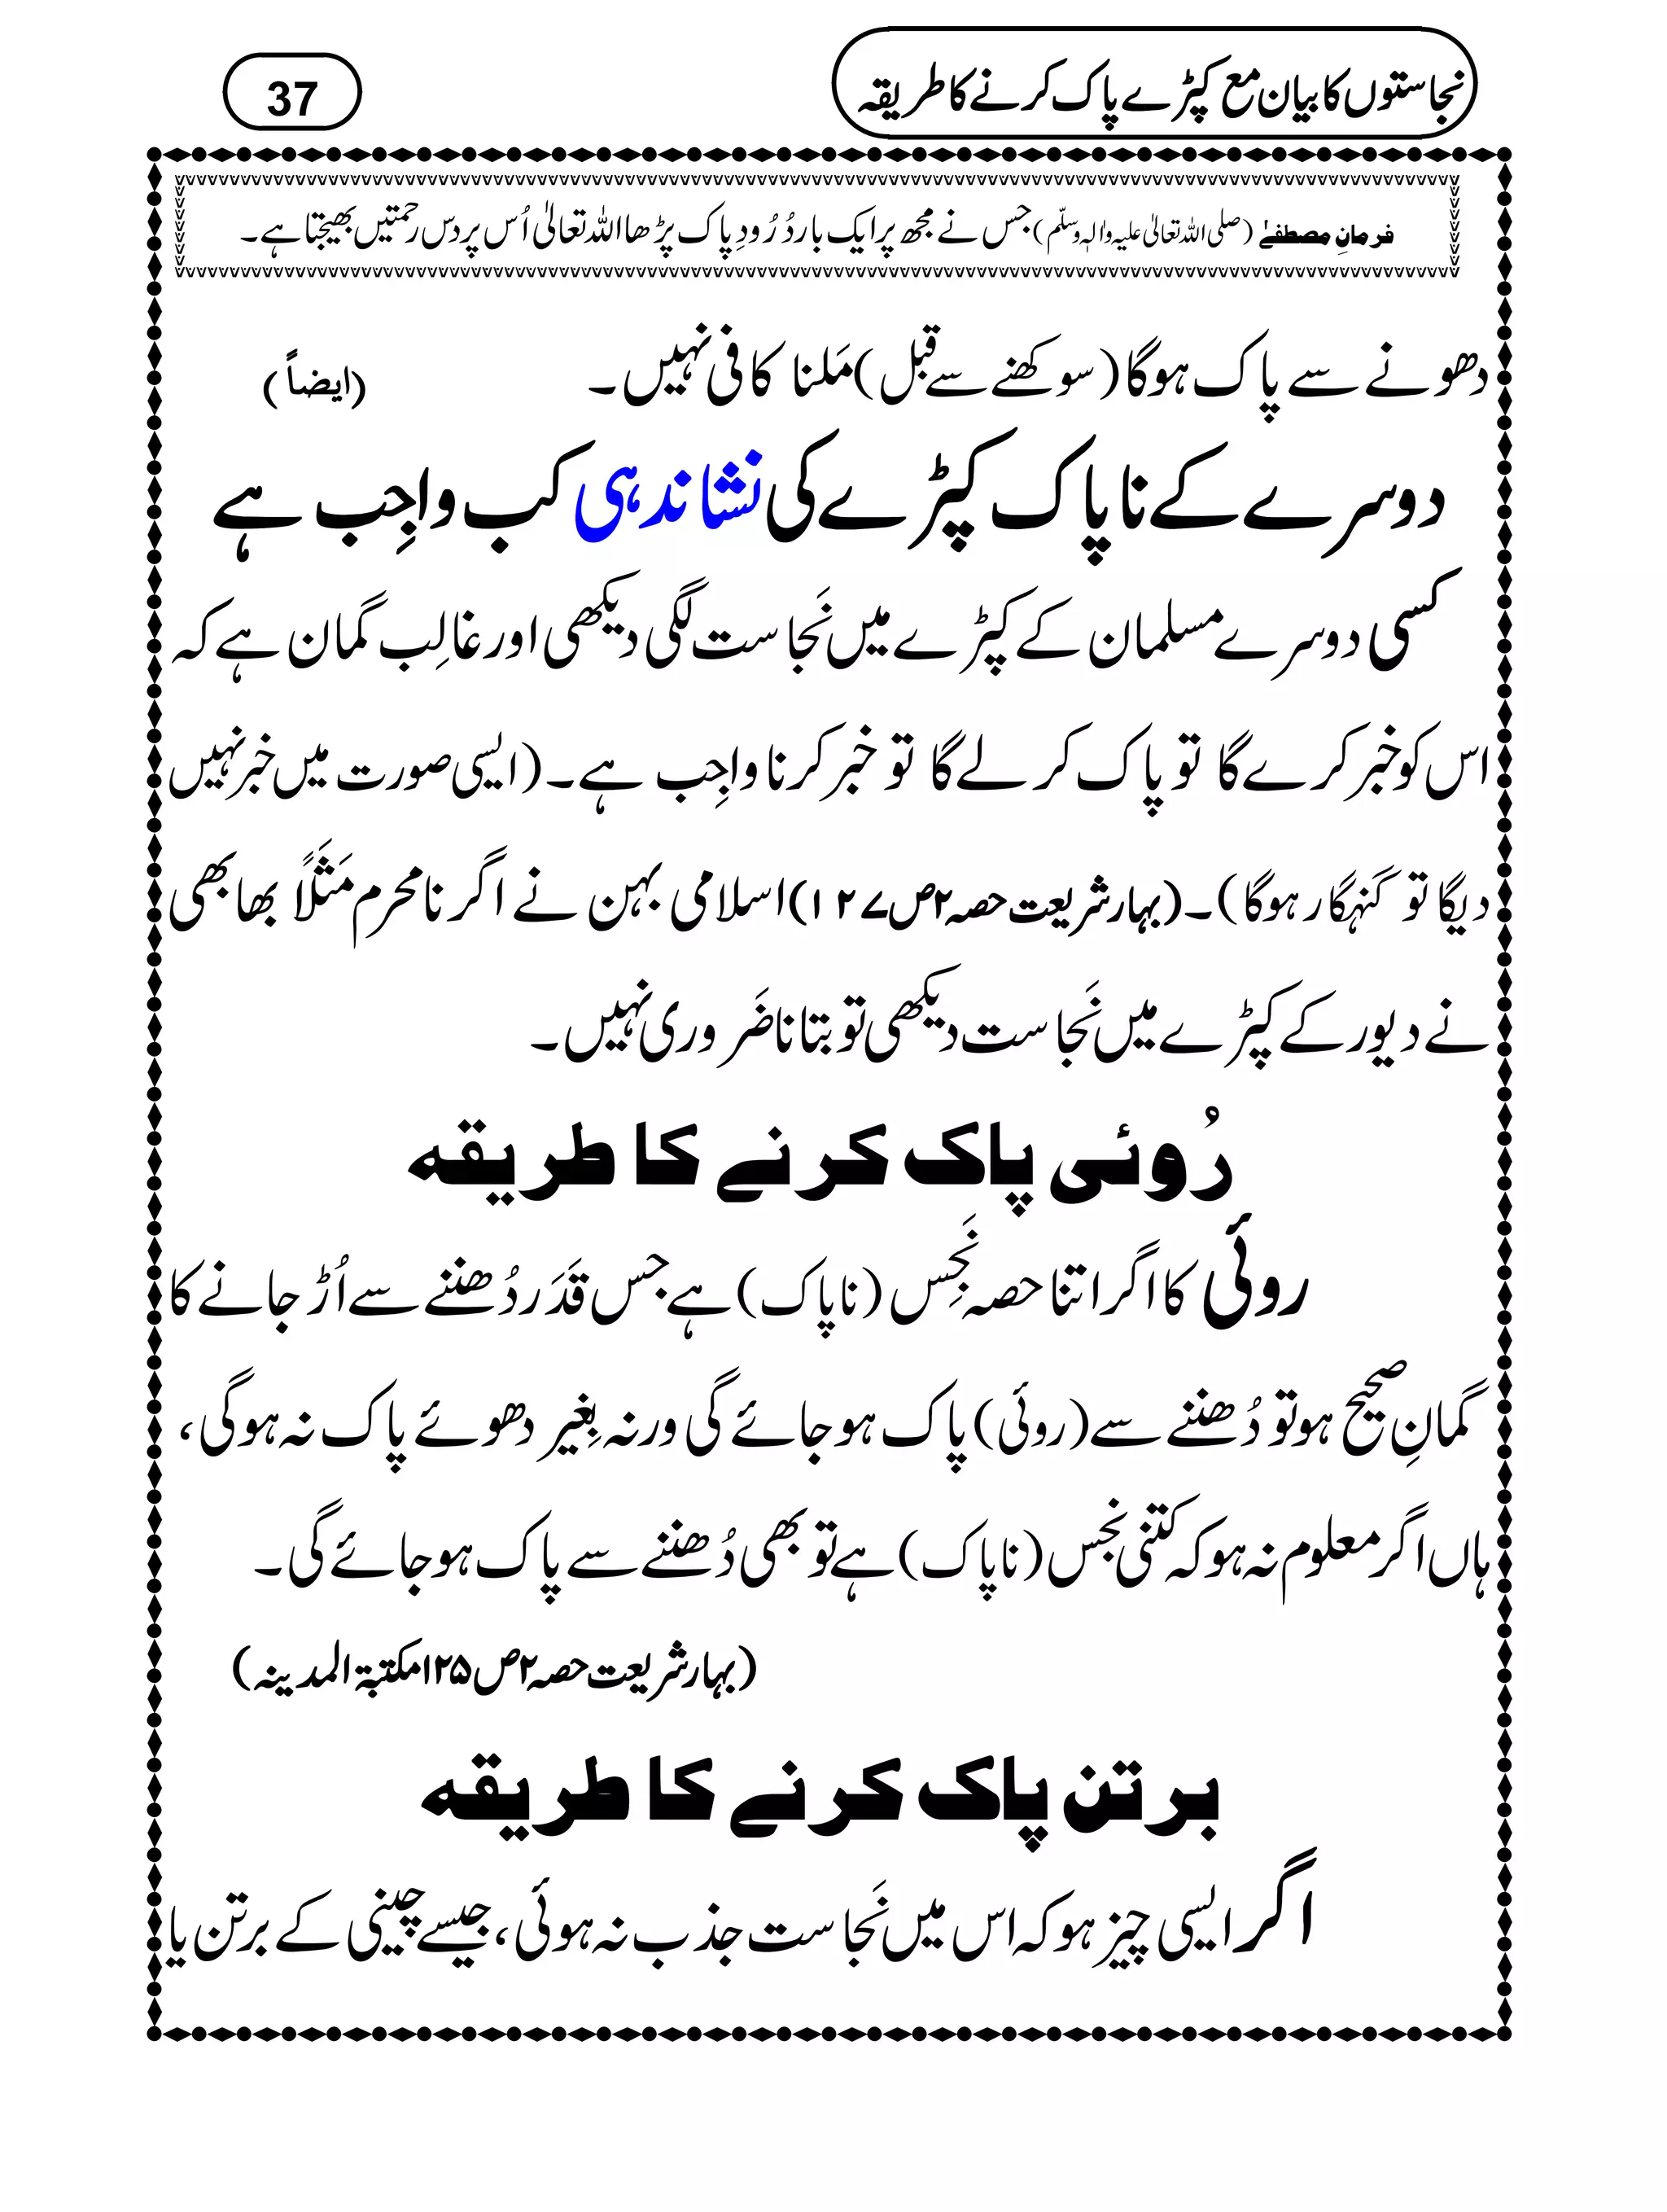 نجاستوں کا بیان مع کپڑے پاک کرنے کا طریقہ
37
فرمانِ مصطفےٰ (صلی اللہ تعالیٰ علیہ واٰلہٖ وسلّم) جس نے مجھ پر ایک بار دُرُودِ پاک پڑھا اللہ تعالیٰ اُس پر دس رحمتیں بھیجتا ہے۔
دھونے سے پاک ہوگا (سوکھنے سے قبل) مَلنا کافی نہیں۔ (ایضاً)
دوسرے کے ناپاک کپڑے کی نشاندہی کب واجِب ہے
کسی دوسرے مسلمان کے کپڑے میں نَجاست لگی دیکھی اور غالِب گمان ہے کہ
اس کو خبر کرے گا تو پاک کر لے گا تو خبر کرنا واجِب ہے۔ (ایسی صورت میں خبر نہیں
دیگا تو گنہگار ہوگا)۔ (بہار شریعت حصہ ۲ ص ۱۲۷) اسلامی بہن نے اگر نامحرم مَثَلًا بھابھی
نے دیور کے کپڑے میں نَجاست دیکھی تو بتانا ضَروری نہیں۔
رُوئی پاک کرنے کا طریقہ
روئی کا اگر اتنا حصہ نَجِس (ناپاک) ہے جس قَدَر دُھننے سے اُڑ جانے کا
گمانِ صحیح ہو تو دُھننے سے (روئی) پاک ہو جائے گی ورنہ بِغیر دھوئے پاک نہ ہوگی،
ہاں اگر معلوم نہ ہو کہ کتنی نجس (ناپاک) ہے تو بھی دُھننے سے پاک ہو جائے گی۔
(بہار شریعت حصہ ۲ ص ۱۲۵ مکتبۃ المدینہ)
برتن پاک کرنے کا طریقہ
اگر ایسی چیز ہو کہ اس میں نَجاست جذب نہ ہوئی، جیسے چینی کے برتن یا